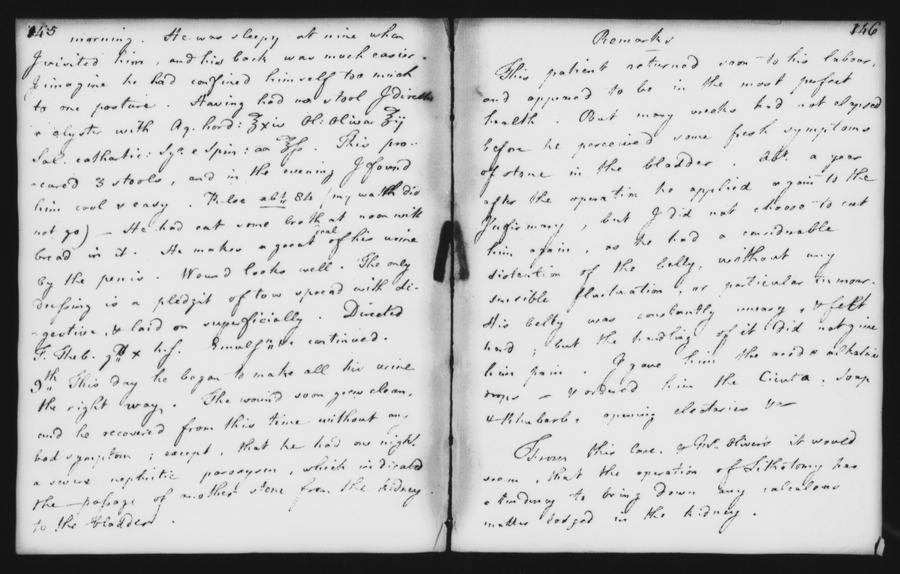 145
morning. He was sleepy at nine when
I visited him, and his back was much easier.
I imagine he had confined himself too much
to one posture. Having had no stool I directed
a glyster with Aq. hord: ℥xiv Ol: Olivar ℥ij
Sal: cathartic: Syr: e Spin: aa ℥ſs. This pro-
-cured 3 stools, and in the evening I found
him cool & easy. Pulse abt. 84 (my watch did
not go) — He had eat some broth at noon with
bread in it. He makes a great deal of his urine
by the penis. Wound looks well. The only
dressing is a pledgit of tow spread with di-
-gestive, & laid on superficially. Directed
T. Theb. gtt x h.s. continued.
9th This day he began to make all his urine
the right way. The wound soon grew clean,
and he recovered from this time without any
bad symptom; except, that he had one night
a severe nephritic paroxysm, which indicated
the passage of another stone from the kidney
to the bladder.
146
Remarks
This patient returned soon to his labour,
and appeared to be in the most perfect
health. But many weeks had not elapsed
before he perceived some fresh symptoms
of stone in the bladder. Abt. a year
after the operation he applied again to the
Infirmary, but I did not choose to cut
him again, as he had a considerable
distention of the belly, without any
sensible fluctuation, or particular tumour.
His belly was constantly uneasy, & felt
hard; but the handling of it did not give
him pain. I gave him the acid & alkaline
drops — & ordered him the Cicuta, soap
& Rhubarb, opening electaries &c—
From this case, & Mr. Oliver's it would
seem, that the operation of Lithotomy has
a tendency to bring down any calculous
matter lodged in the kidney.